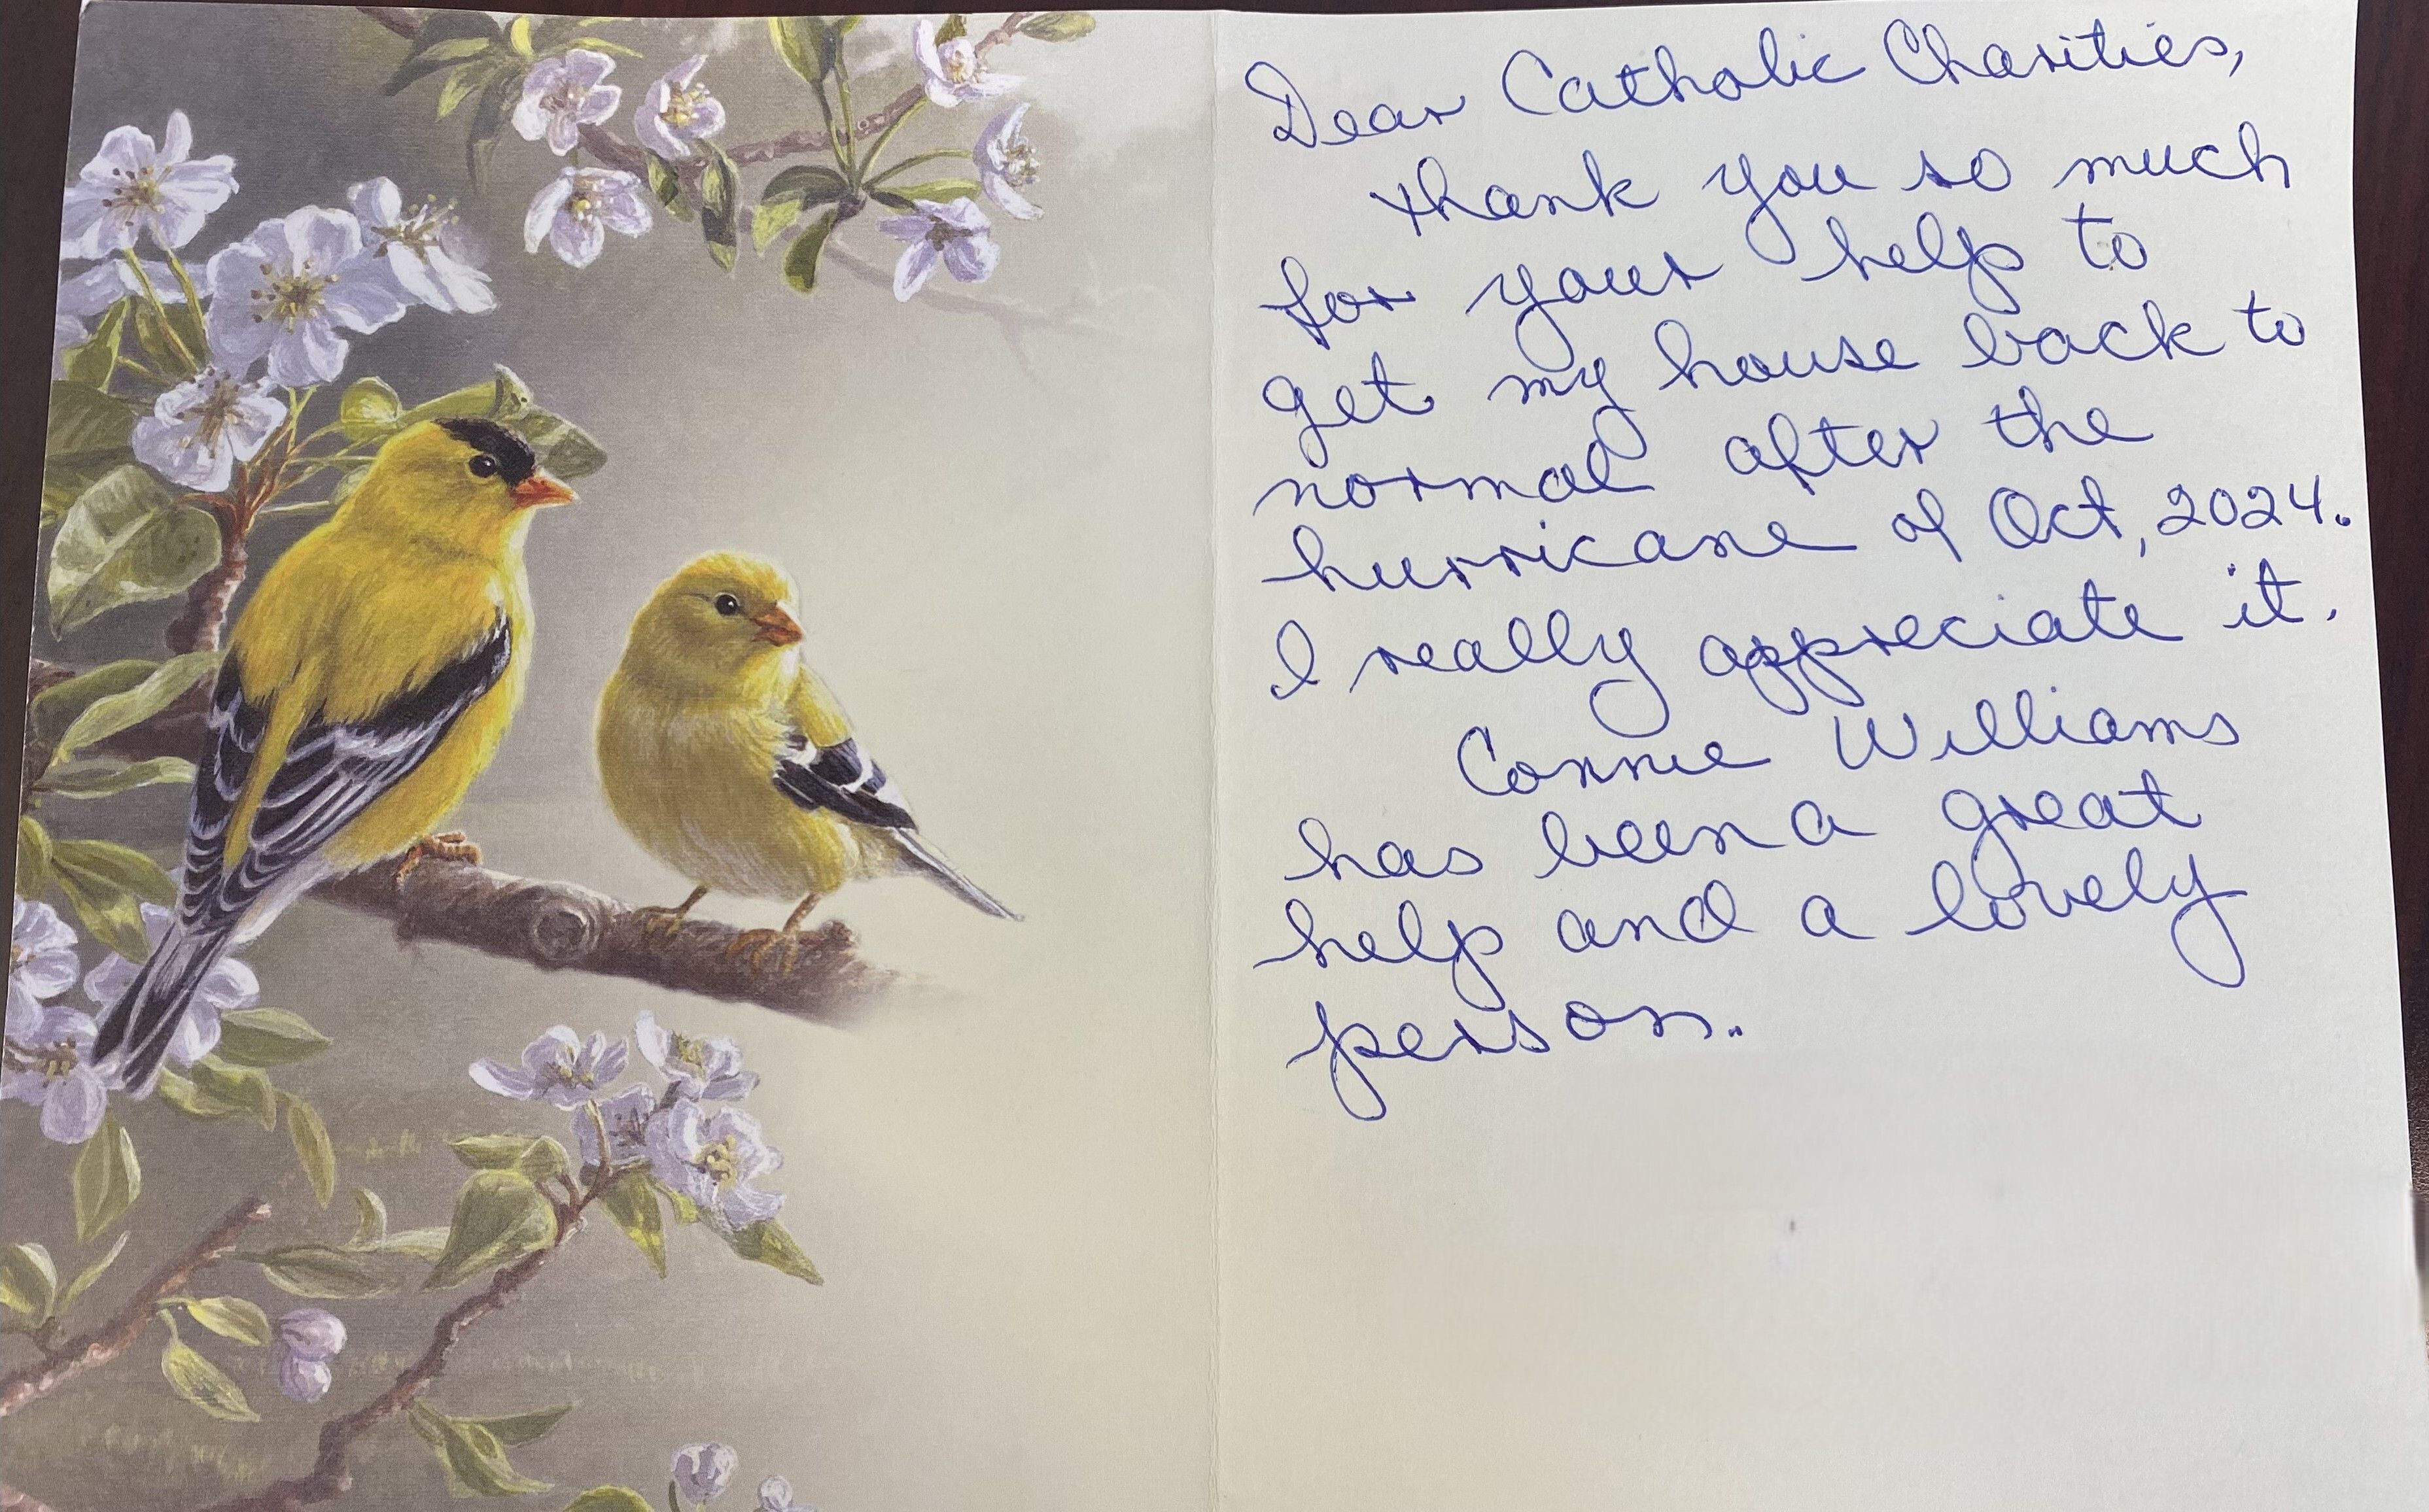 Dear Catholic Charities,
thank you so much
for your help to
get my house back to
normal after the
hurricane of Oct, 2024.
I really appreciate it.
Connie Williams
has been a great
help and a lovely
person.